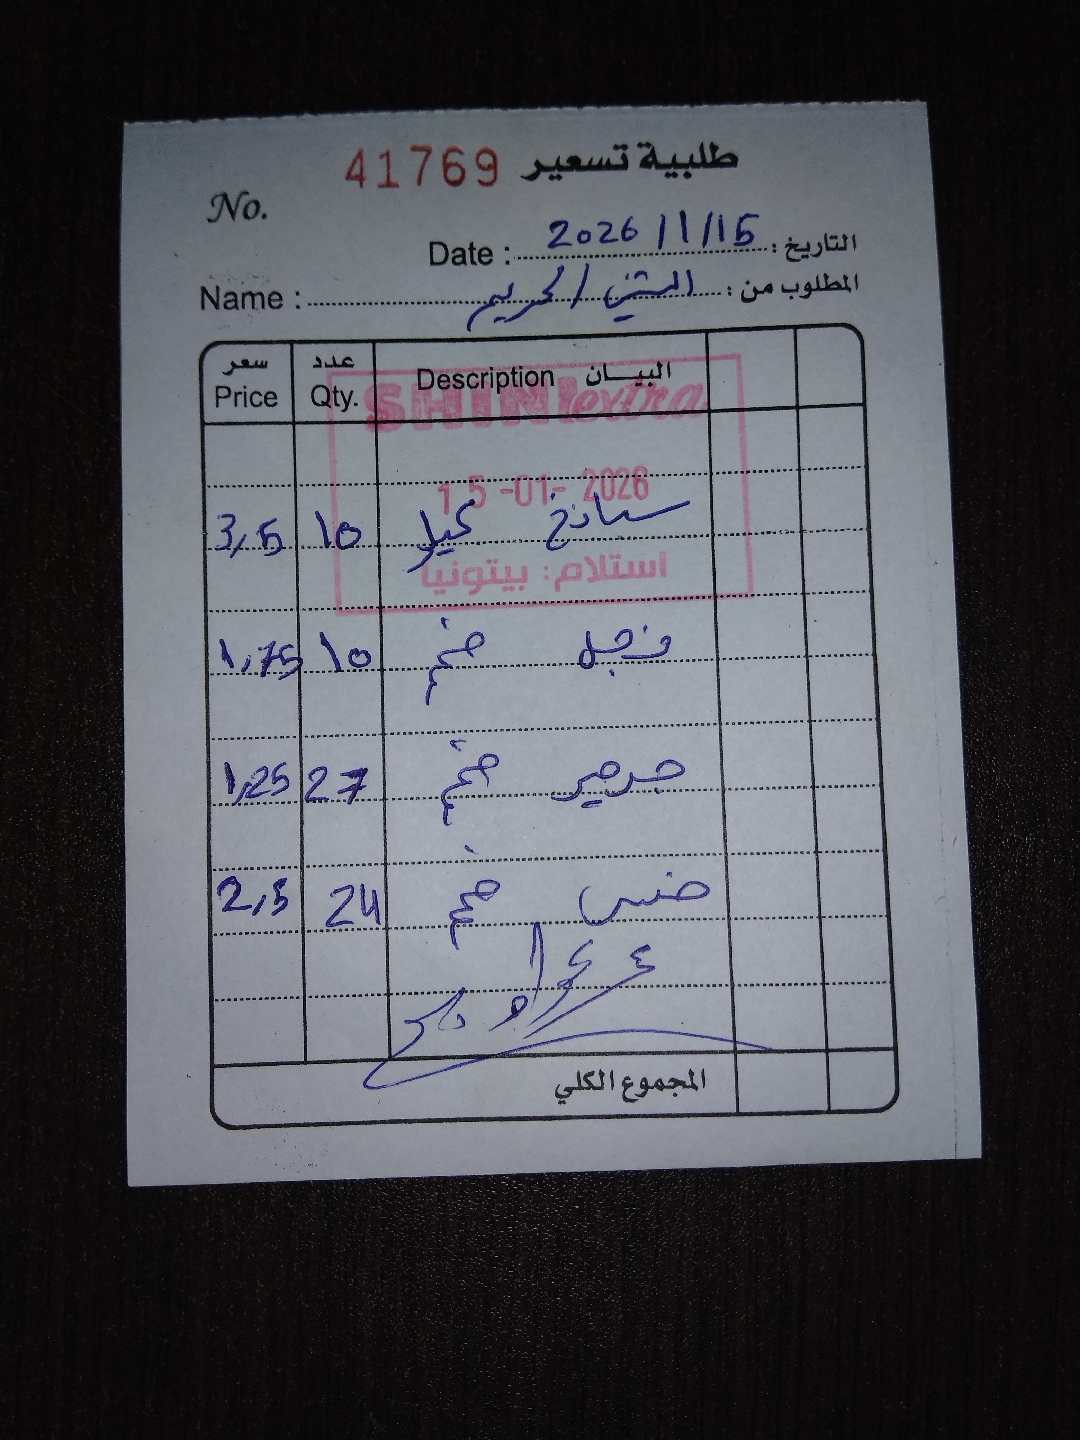 طلبية تسعير 41769
No.
التاريخ : 2026/1/15 Date :
المطلوب من : Name :
البيـــان Description عدد Qty. سعر Price
SHINI extra
15-01-2026
سبانخ كيلو 10 3,5
استلام: بيتونيا
فجل ضم 10 1,75
جرجير ضم 27 1,25
خس ضم 24 2,5
المجموع الكلي